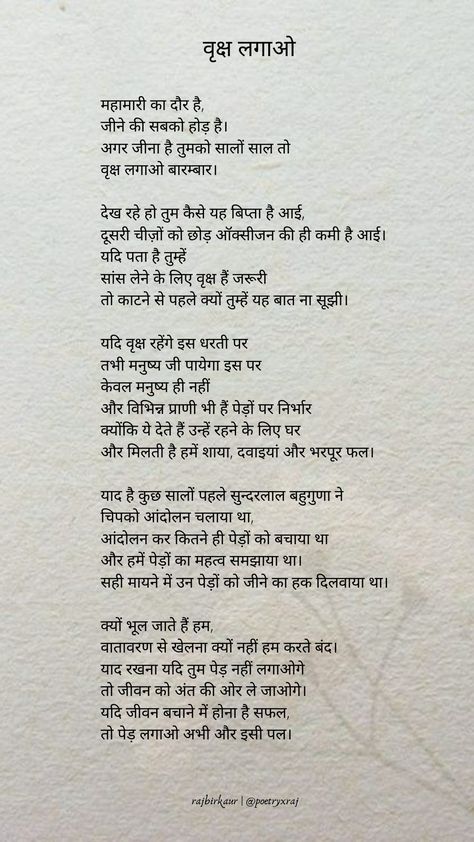 वृक्ष लगाओ
महामारी का दौर है,
जीने की सबको होड़ है।
अगर जीना है तुमको सालों साल तो
वृक्ष लगाओ बारम्बार।
देख रहे हो तुम कैसे यह बिप्ता है आई,
दूसरी चीज़ों को छोड़ ऑक्सीजन की ही कमी है आई।
यदि पता है तुम्हें
सांस लेने के लिए वृक्ष हैं जरूरी
तो काटने से पहले क्यों तुम्हें यह बात ना सूझी।
यदि वृक्ष रहेंगे इस धरती पर
तभी मनुष्य जी पायेगा इस पर
केवल मनुष्य ही नहीं
और विभिन्न प्राणी भी हैं पेड़ों पर निर्भार
क्योंकि ये देते हैं उन्हें रहने के लिए घर
और मिलती है हमें शाया, दवाइयां और भरपूर फल।
याद है कुछ सालों पहले सुन्दरलाल बहुगुणा ने
चिपको आंदोलन चलाया था,
आंदोलन कर कितने ही पेड़ों को बचाया था
और हमें पेड़ों का महत्व समझाया था।
सही मायने में उन पेड़ों को जीने का हक दिलवाया था।
क्यों भूल जाते हैं हम,
वातावरण से खेलना क्यों नहीं हम करते बंद।
याद रखना यदि तुम पेड़ नहीं लगाओगे
तो जीवन को अंत की ओर ले जाओगे।
यदि जीवन बचाने में होना है सफल,
तो पेड़ लगाओ अभी और इसी पल।
rajbirkaur | @poetryxraj